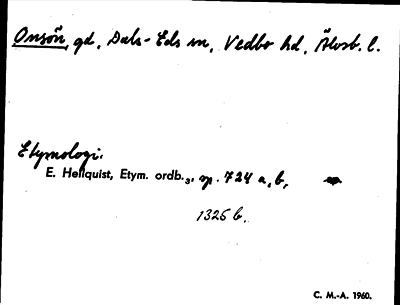 Onsön, gd, Dals-Eds sn, Vedbo hd, Älvsb. l.
Etymologi.
E. Hellquist, Etym. ordb.₃, sp. 724 a, b,
1326 b.
C. M.-A. 1960.